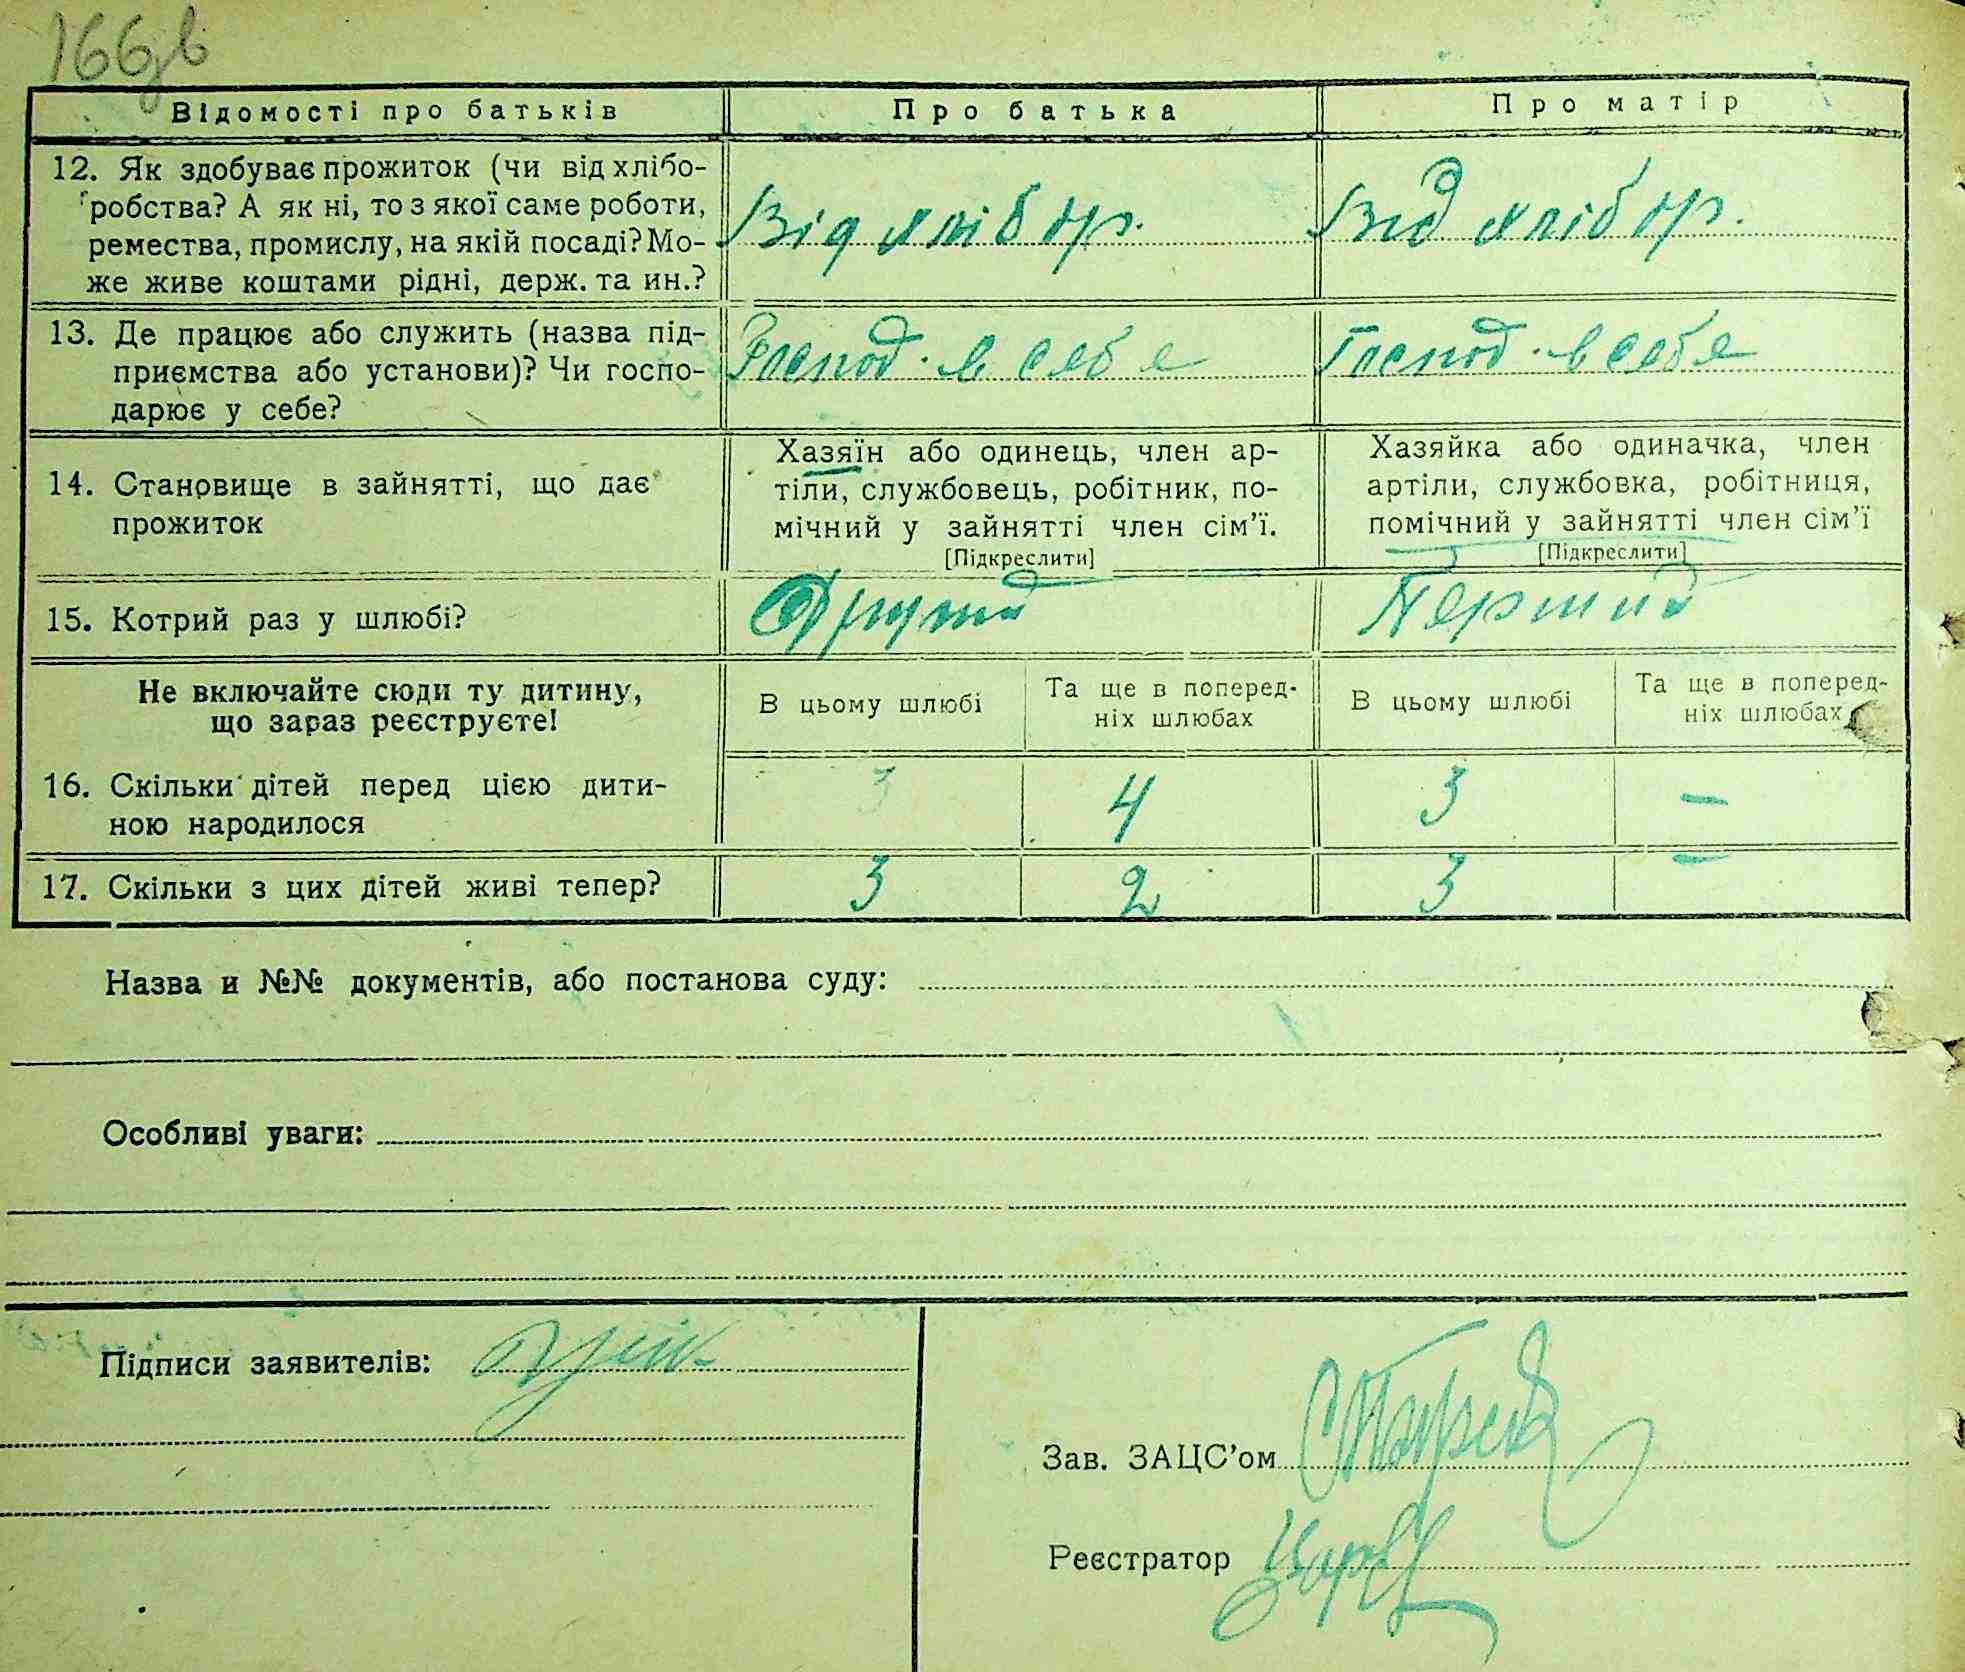 166зв
Відомості про батьків Про батька Про матір
12. Як здобуває прожиток (чи від хлібо-
робства? А як ні, то з якої саме роботи,
ремества, промислу, на якій посаді? Мо-
же живе коштами рідні, держ. та ин.?
Від хлібор. Від хлібор.
13. Де працює або служить (назва під-
приємства або установи)? Чи госпо-
дарює у себе?
Господ. в себе Господ. в себе
14. Становище в зайнятті, що дає
прожиток
Хазяїн або одинець, член ар-
тіли, службовець, робітник, по-
мічний у зайнятті член сім'ї.
[Підкреслити]
Хазяйка або одиначка, член
артіли, службовка, робітниця,
помічний у зайнятті член сім'ї
[Підкреслити]
15. Котрий раз у шлюбі? Другий Перший
Не включайте сюди ту дитину,
що зараз реєструєте!
В цьому шлюбі
Та ще в поперед-
ніх шлюбах
В цьому шлюбі
Та ще в поперед-
ніх шлюбах
16. Скільки дітей перед цією дити-
ною народилося
3 4 3 –
17. Скільки з цих дітей живі тепер? 3 2 3 –
Назва и №№ документів, або постанова суду:
Особливі уваги:
Підписи заявителів:
Зав. ЗАЦС'ом
Реєстратор